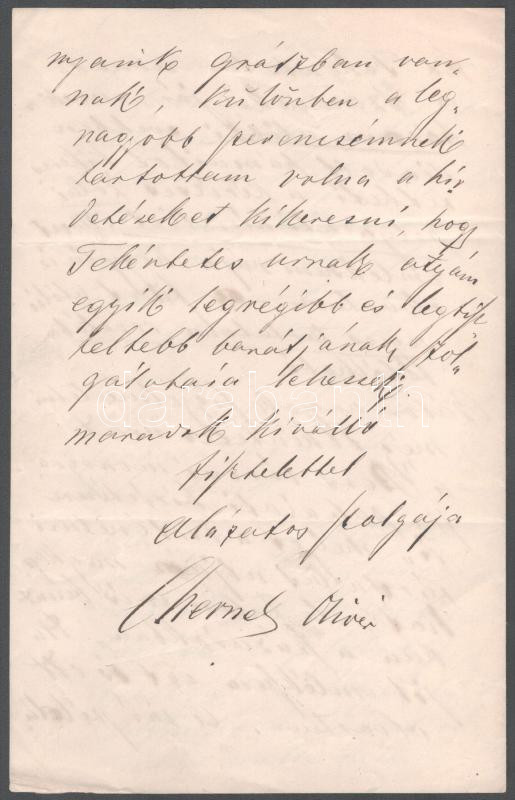 nyaink Grátzban van-
nak, különben a leg-
nagyobb szerencsémnek
tartottam volna a hir
detéseket kikeresni, hogy
Tekéntetes urnak atyám
egyik legrégibb és legtisz
teltebb barátjának szol-
gálatára lehessek,
maradok kiválló
tisztelettel
alázatos szolgája
Chernel Olivér
darabanth